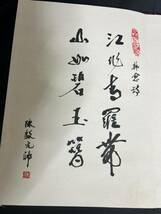 韓愈詩
江作青羅帶
山如碧玉簪
陳毅元帥